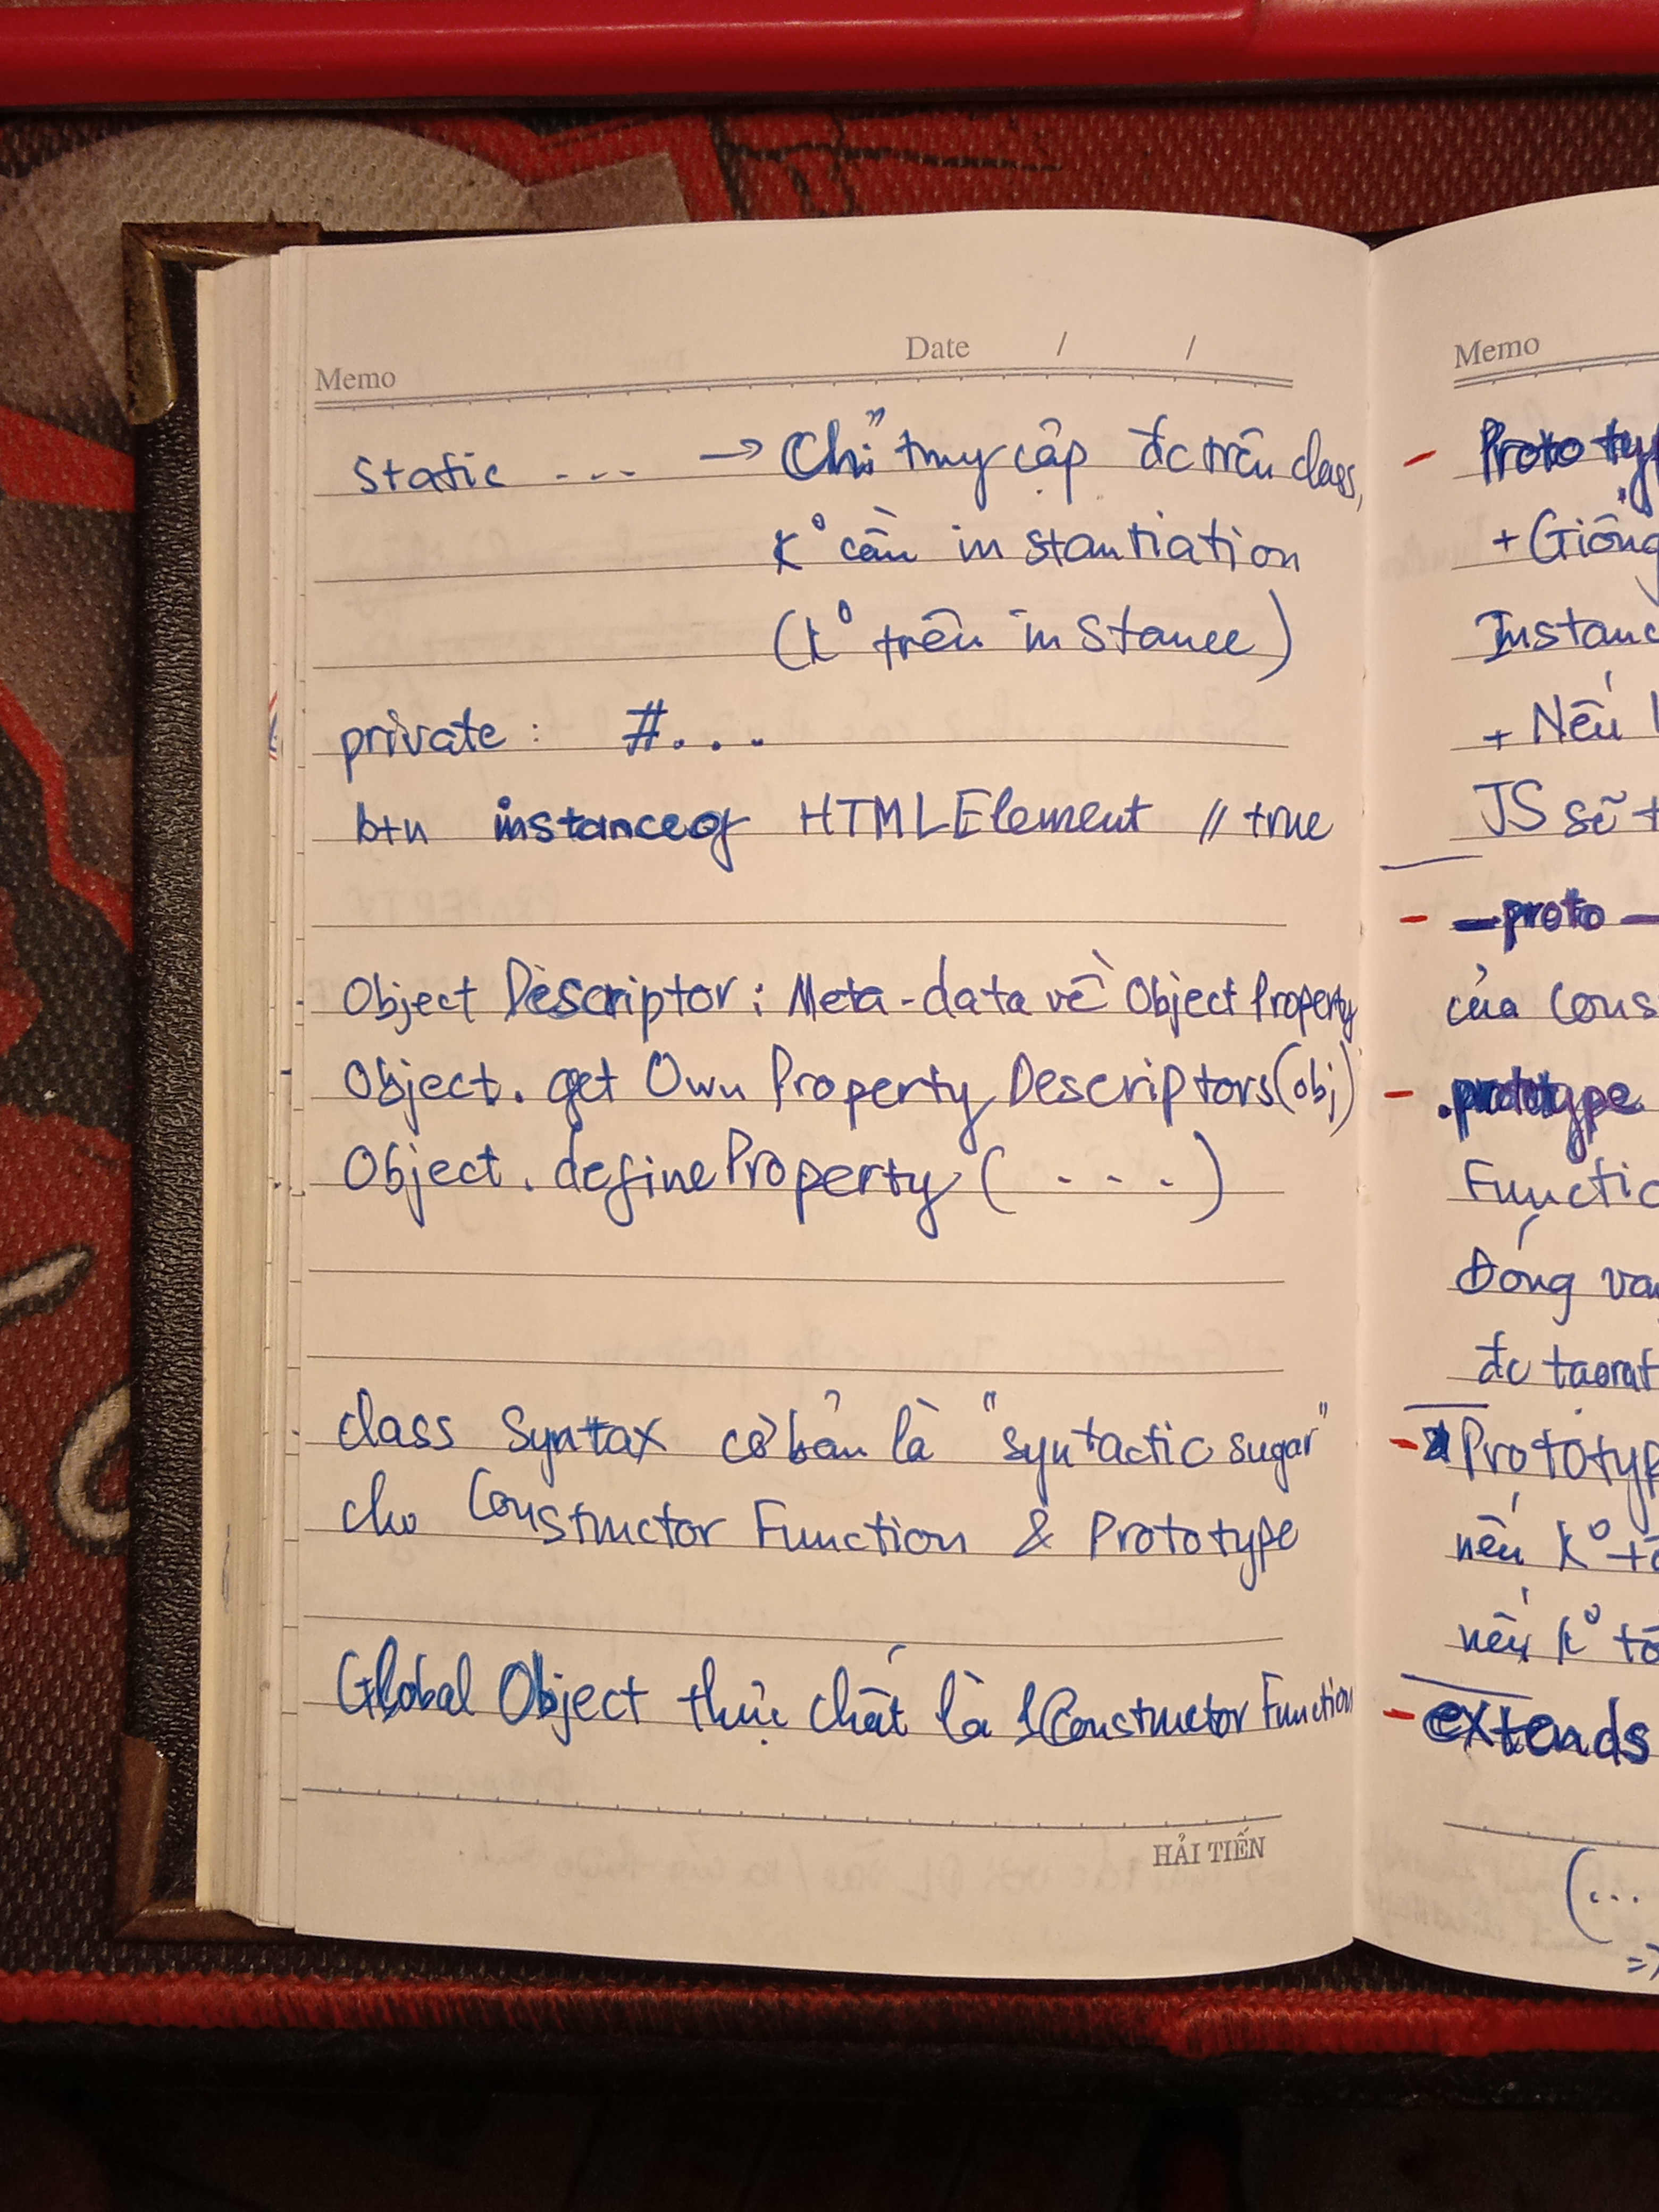 Memo Date / /
static ... → Chỉ truy cập đc trên class,
K° cần instantiation
(k° trên instance)
private : #...
btn instanceof HTMLElement // true
Object Descriptor : Meta-data về Object Property
Object. get Own Property Descriptors(obj)
Object. defineProperty ( ... )
class Syntax cơ bản là "syntactic sugar"
cho Constructor Function & Prototype
Global Object thực chất là 1 Constructor Function
HẢI TIẾN
Memo
- Prototy
+ Giống
Instanc
+ Nếu
JS sẽ t
- __proto__
của Cons
- .prototype
Functio
Đóng va
đc tạo ra t
- Prototyp
nếu k° tồ
nếu k° tồ
- extends
(...
=>